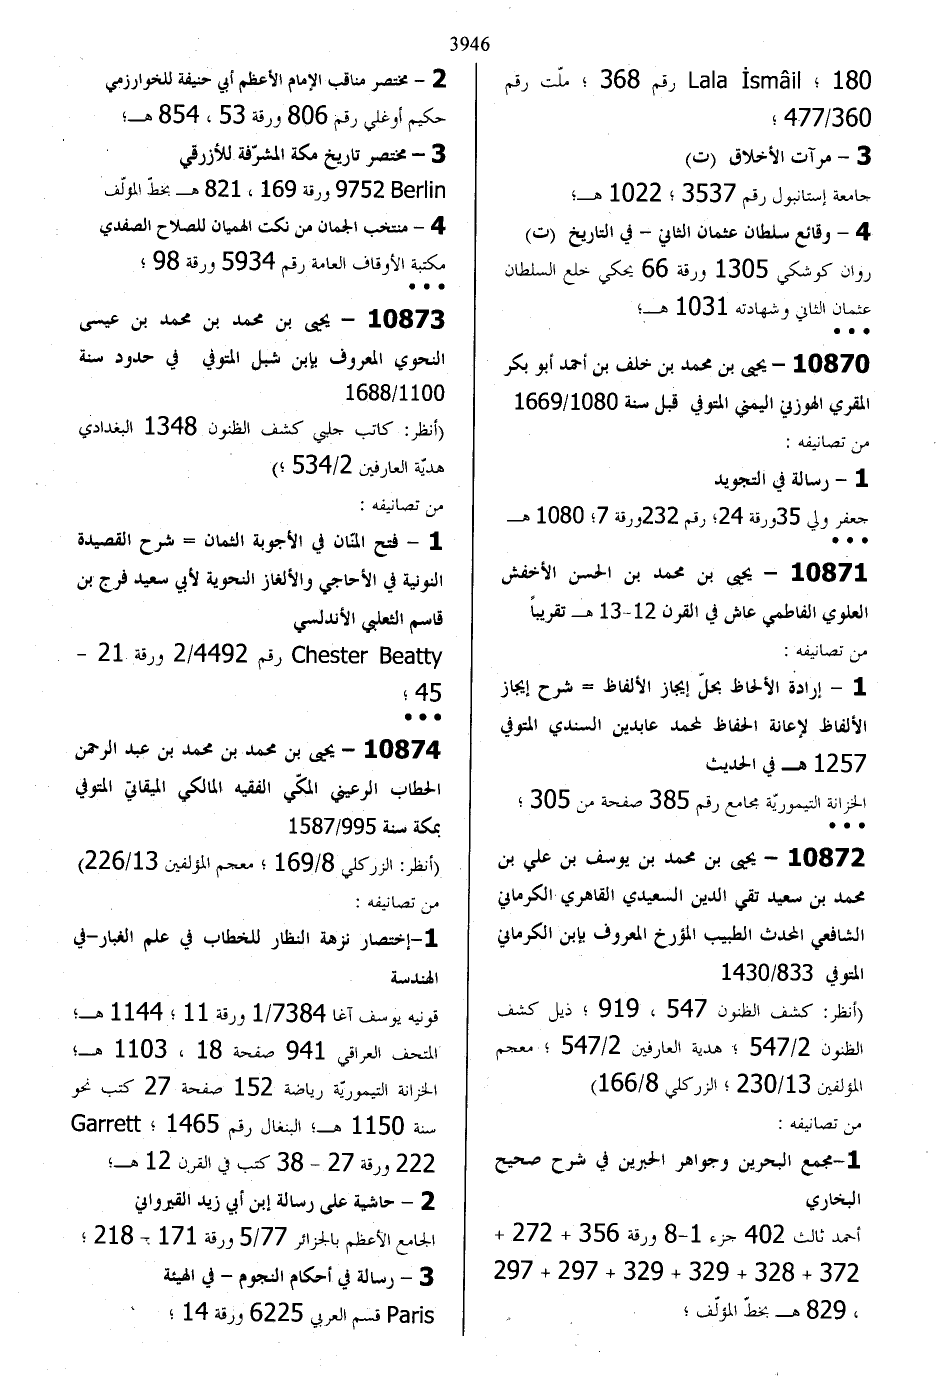 3946
180 ؛ Lala İsmâil رقم 368 ؛ ملّت رقم
477/360 ؛
3 – مرآت الأخلاق (ت)
جامعة إستانبول رقم 3537 ؛ 1022 هــ؛
4 – وقائع سلطان عثمان الثاني – في التاريخ (ت)
روان كوشكي 1305 ورقة 66 يحكي خلع السلطان
عثمان الثاني وشهادته 1031 هــ؛
•••
10870 – يحيى بن محمد بن خلف بن أحمد أبو بكر
المقري الهوزني اليمني المتوفي قبل سنة 1669/1080
من تصانيفه :
1 – رسالة في التجويد
جعفر ولي 35ورقة 24؛ رقم 232ورقة 7؛ 1080 هــ
•••
10871 – يحيى بن محمد بن الحسن الأخفش
العلوي الفاطمي عاش في القرن 12-13 هــ تقريباً
من تصانيفه :
1 – إرادة الألحاظ بحلّ إيجاز الألفاظ = شرح إيجاز
الألفاظ لإعانة الحفاظ لمحمد عابدين السندي المتوفي
1257 هــ في الحديث
الخزانة التيموريّة مجامع رقم 385 صفحة من 305 ؛
•••
10872 – يحيى بن محمد بن يوسف بن علي بن
محمد بن سعيد تقي الدين السعيدي القاهري الكرماني
الشافعي المحدث الطبيب المؤرخ المعروف بإبن الكرماني
المتوفي 1430/833
(أنظر: كشف الظنون 547 ، 919 ؛ ذيل كشف
الظنون 547/2 ؛ هدية العارفين 547/2 ؛ معجم
المؤلفين 230/13 ؛ الزركلي 166/8)
من تصانيفه :
1-مجمع البحرين وجواهر الحبرين في شرح صحيح
البخاري
أحمد ثالث 402 جزء 1-8 ورقة 356 + 272 +
372 + 328 + 329 + 329 + 297 + 297
، 829 هــ بخطّ المؤلّف ؛
2 – مختصر مناقب الإمام الأعظم أبي حنيفة للخوارزمي
حكيم أوغلي رقم 806 ورقة 53 ، 854 هــ؛
3 – مختصر تاريخ مكة المشرّفة للأزرقي
Berlin 9752 ورقة 169 ، 821 هــ بخطّ المؤلّف
4 – منتخب الجمان من نكت الهميان للصلاح الصفدي
مكتبة الأوقاف العامة رقم 5934 ورقة 98 ؛
•••
10873 – يحيى بن محمد بن محمد بن عيسى
النحوي المعروف بإبن شبل المتوفي في حدود سنة
1688/1100
(أنظر: كاتب جلبي كشف الظنون 1348 البغدادي
هديّة العارفين 534/2 ؛)
من تصانيفه :
1 – فتح المنّان في الأجوبة الثمان = شرح القصيدة
النونية في الأحاجي والألغاز النحوية لأبي سعيد فرج بن
قاسم الثعلبي الأندلسي
Chester Beatty رقم 2/4492 ورقة 21 –
45 ؛
•••
10874 – يحيى بن محمد بن محمد بن عبد الرحمن
الحطاب الرعيني المكّي الفقيه المالكي الميقاتي المتوفي
بمكة سنة 1587/995
(أنظر: الزركلي 169/8 ؛ معجم المؤلفين 226/13)
من تصانيفه :
1-إختصار نزهة النظار للخطاب في علم الغبار-في
الهندسة
قونيه يوسف آغا 1/7384 ورقة 11 ؛ 1144 هــ؛
المتحف العراقي 941 صفحة 18 ، 1103 هــ؛
الخزانة التيموريّة رياضة 152 صفحة 27 كتب نحو
سنة 1150 هــ؛ البنغال رقم 1465 ؛ Garrett
222 ورقة 27 – 38 كتب في القرن 12 هــ؛
2 – حاشية على رسالة إبن أبي زيد القيرواني
الجامع الأعظم بالجزائر 5/77 ورقة 171 – 218 ؛
3 – رسالة في أحكام النجوم – في الهيئة
Paris قسم العربي 6225 ورقة 14 ؛